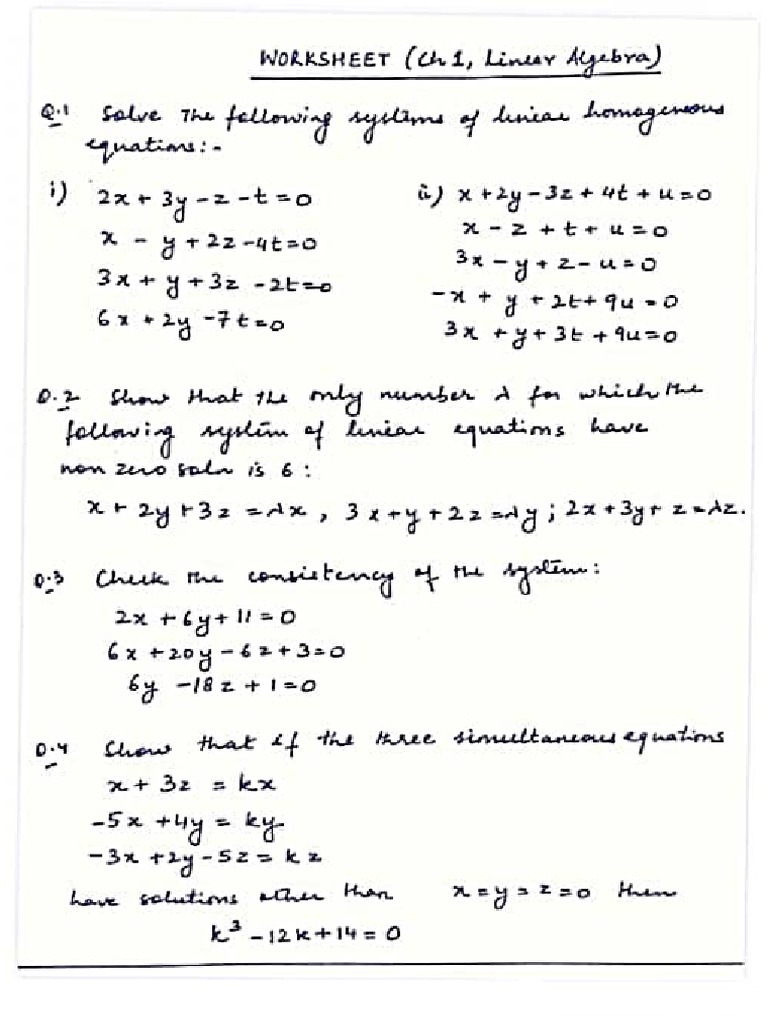 WORKSHEET (Ch 1, Linear Algebra)
Q.1 Solve The following systems of linear homogeneous
equations:-
i) 2x + 3y - z - t = 0
x - y + 2z - 4t = 0
3x + y + 3z - 2t = 0
6x + 2y - 7t = 0
ii) x + 2y - 3z + 4t + u = 0
x - z + t + u = 0
3x - y + z - u = 0
-x + y + 2t + 9u = 0
3x + y + 3t + 9u = 0
Q.2 Show that the only number λ for which the
following system of linear equations have
non zero soln is 6 :
x + 2y + 3z = λx , 3x + y + 2z = λy ; 2x + 3y + z = λz.
Q.3 Check the consistency of the system :
2x + 6y + 11 = 0
6x + 20y - 6z + 3 = 0
6y - 18z + 1 = 0
Q.4 Show that if the three simultaneous equations
x + 3z = kx
-5x + 4y = ky
-3x + 2y - 5z = kz
have solutions other than x = y = z = 0 then
k³ - 12k + 14 = 0